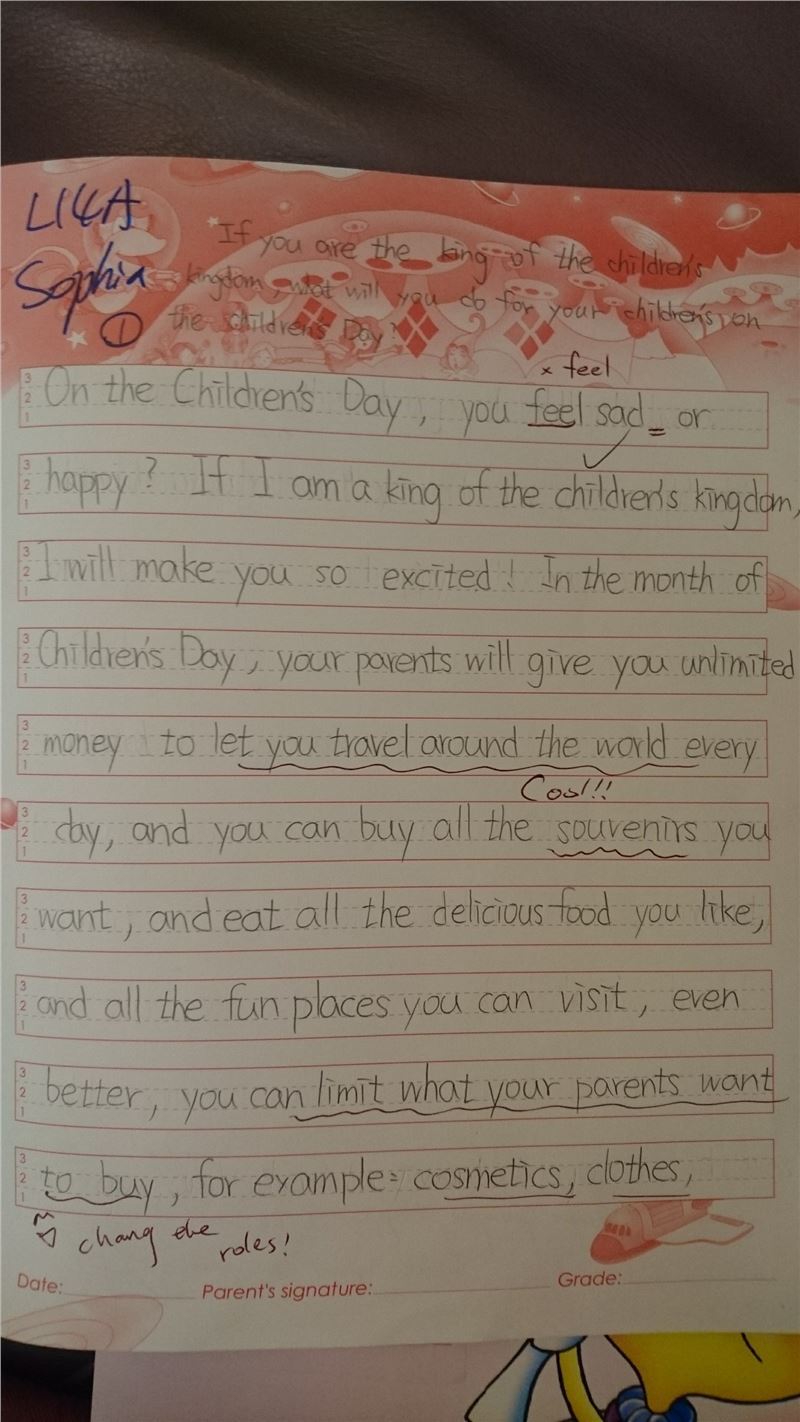 L14A
Sophia
①
If you are the king of the children's
kingdom, what will you do for your children's, on
the children's Day?
x feel
On the Children's Day, you feel sad or
happy? If I am a king of the children's kingdom,
I will make you so excited! In the month of
Children's Day, your parents will give you unlimited
money to let you travel around the world every
Cool!!
day, and you can buy all the souvenirs you
want, and eat all the delicious food you like,
and all the fun places you can visit, even
better, you can limit what your parents want
to buy, for example: cosmetics, clothes,
chang the
roles!
Date:
Parent's signature:
Grade: